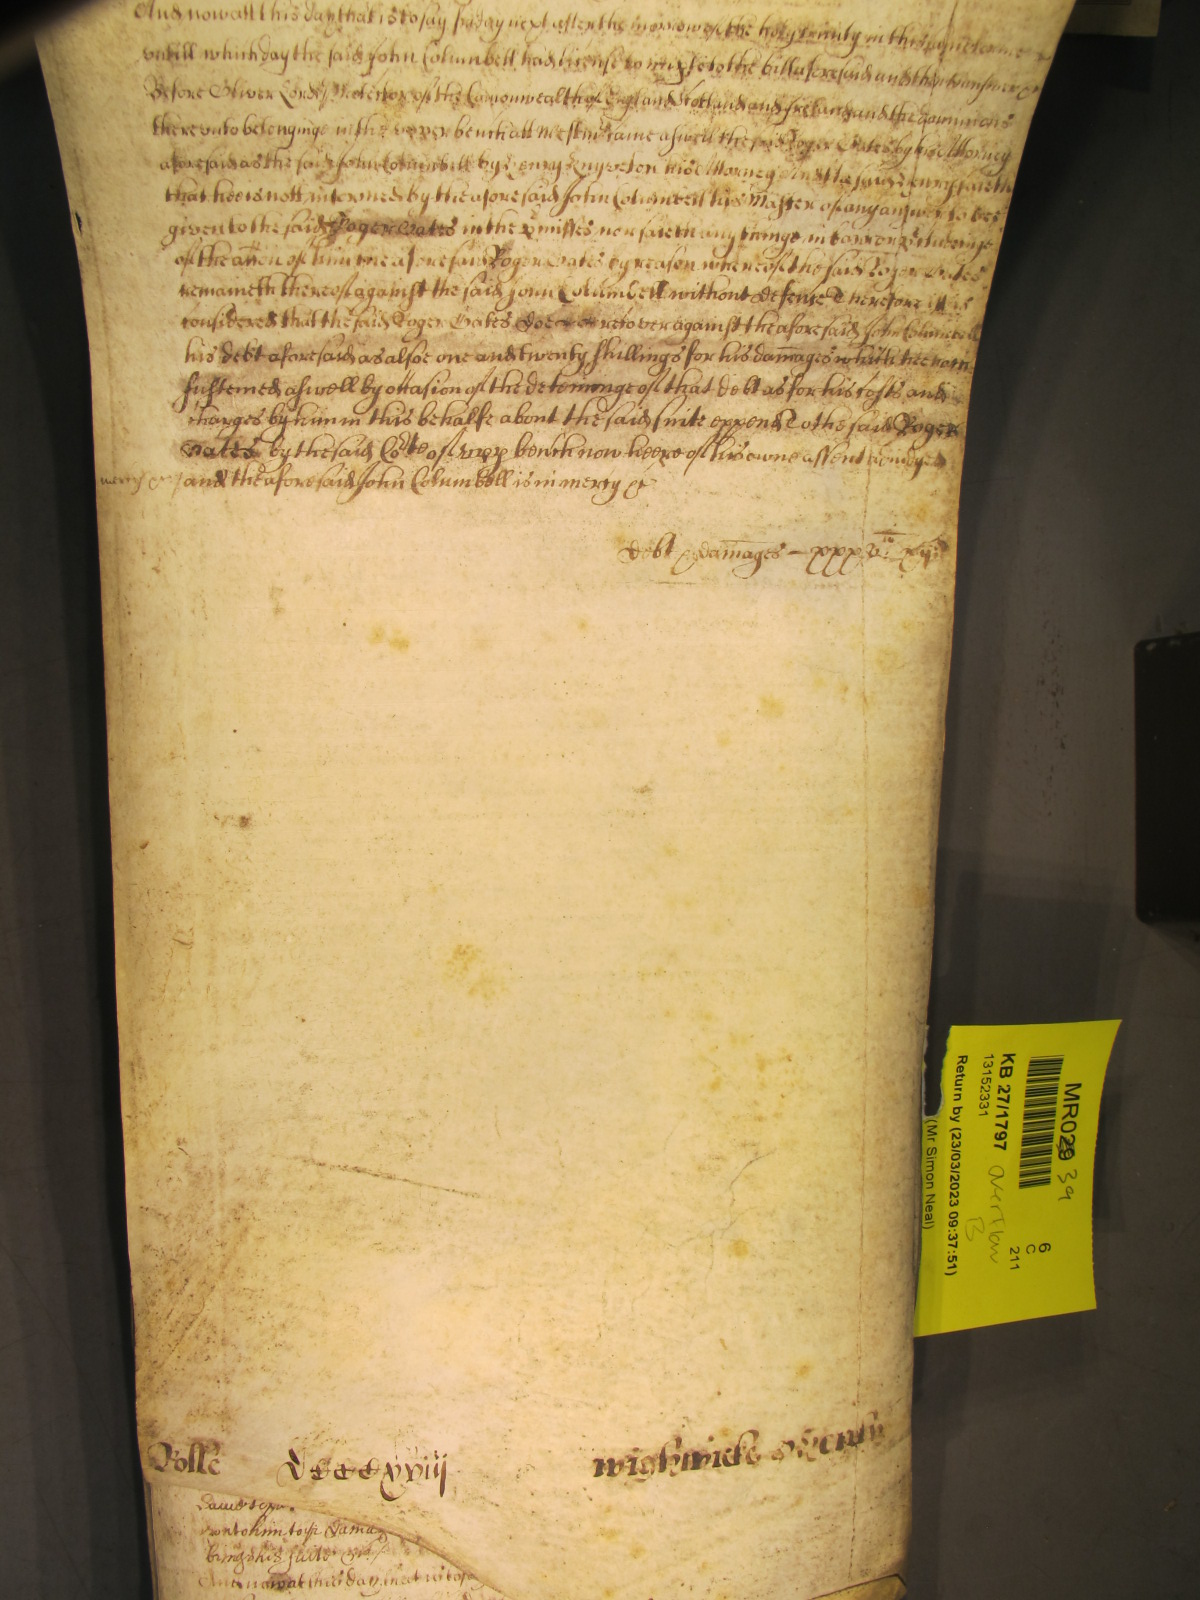 And now att this day that is to say friday next after the morrow of the holy Trinity in this same terme
untill which day the said John Columbell had license to imparle to the bill aforesaid and then to answer &c
Before Oliver Lord Protector of the Comonwealth of England Scotland and Ireland and the dominions
thereunto belonginge in the upper bench att Westm came aswell the said Roger Oates by his Attorney
aforesaid as the said John Columbell by Henry his Attorney And the said Henry saieth
that hee is nott informed by the aforesaid John Columbell his Master of any answer to bee
given to the said Roger Oates in the pmisses nor saieth any thinge in barr or pcludinge
of the accon of him the aforesaid Roger Oates by reason whereof the said Roger Oates
remaineth thereof against the said John Columbell without defense Therefore itt is
considered that the said Roger Oates doe recover against the aforesaid John Columbell
his debt aforesaid as alsoe one and twenty shillings for his damages which hee hath
susteined aswell by occasion of the deteininge of that debt as for his costs and
charges by him in this behalfe about the said suite expend To the said Roger
Oates by the said Co̅rte of upp bench now heere of his owne assent adiudged
mercy &c and the aforesaid John Columbell is in mercy &c
debt & damages — xxxvli. xijs
Rolle Dccccxxiij wightwicke
unto him to his dama
bringes his suite &c
And now at this day that is to say
MR029 39
KB 27/1797
13152331
Return by (23/03/2023 09:37:51)
(Mr Simon Neal)
overflow
B
6
C
211